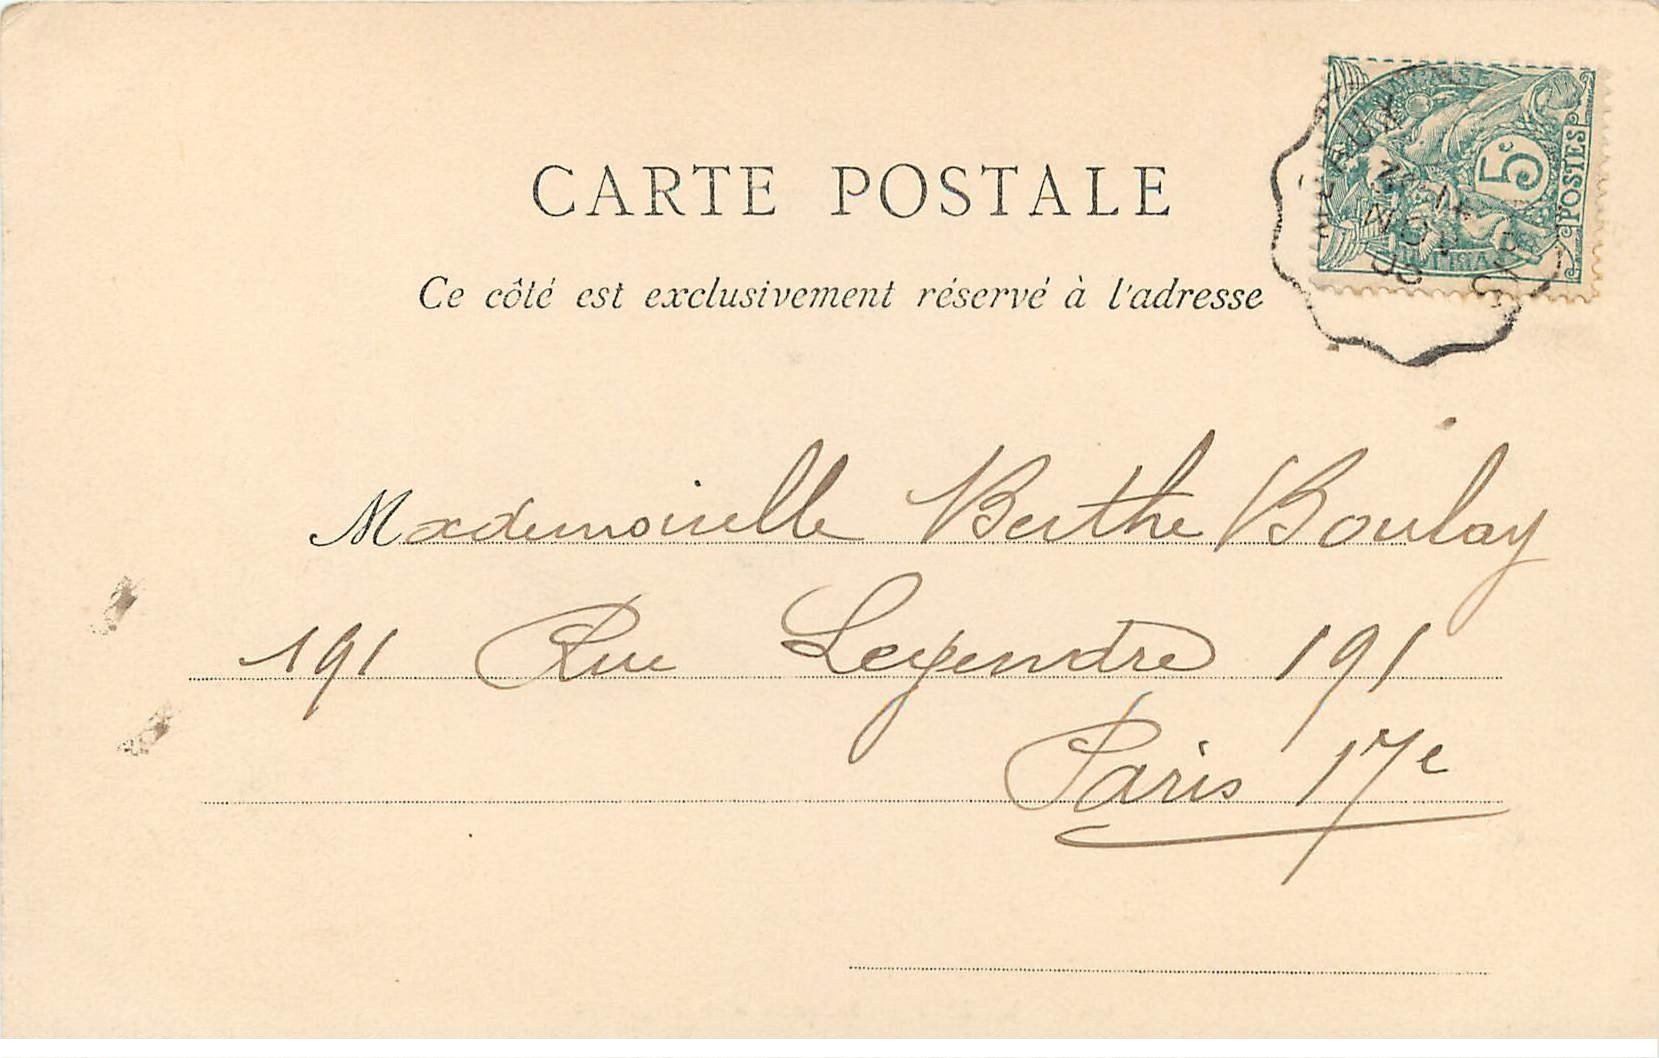 CARTE POSTALE
Ce côté est exclusivement réservé à l'adresse
5c
POSTES
Mademoiselle Berthe Boulay
191 Rue Legendre 191
Paris 17e